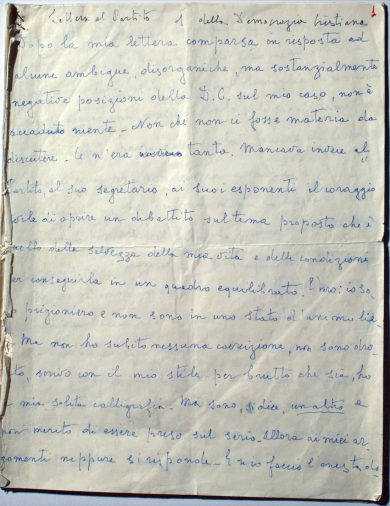 Lettera al Partito della Democrazia Cristiana
1
Dopo la mia lettera comparsa in risposta ad
alcune ambigue, disorganiche, ma sostanzialmente
negative posizioni della D.C. sul mio caso, non è
accaduto niente. Non che non ci fosse materia da
discutere. Ce n'era tanta. Mancava invece al
Partito, al suo segretario, ai suoi esponenti il coraggio
civile di aprire un dibattito sul tema proposto che è
quello della salvezza della mia vita e delle condizioni
per conseguirla in un quadro equilibrato. E' vero: io so
o prigioniero e non sono in uno stato d'animo lie
Ma non ho subito nessuna coercizione, non sono dro
to, scrivo con il mio stile per brutto che sia, ho
mia solita calligrafia. Ma sono, si dice, un altro e
non merito di essere preso sul serio. Allora ai miei ar
gomenti neppure si risponde. E se io faccio l'onesta do